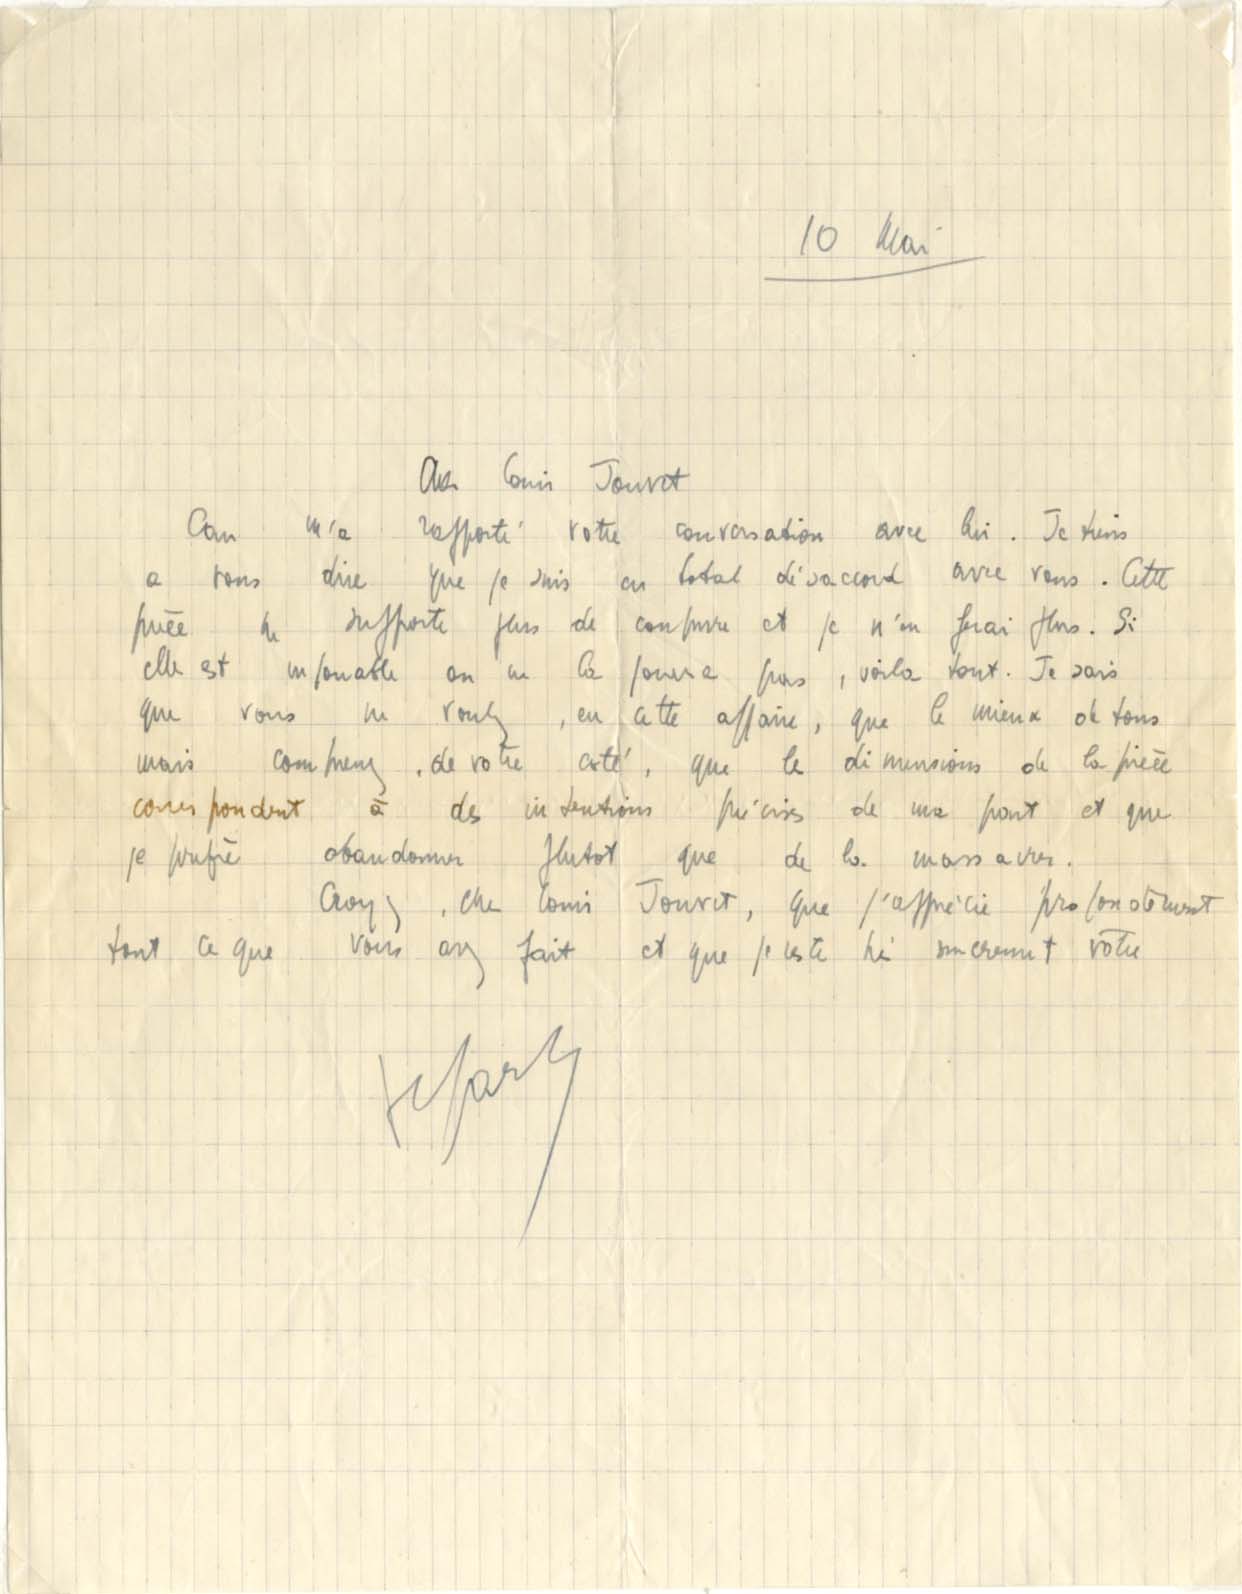 10 Mai
Cher Louis Jouvet
Cau m'a rapporté votre conversation avec lui. Je tiens
a vous dire que je suis en total désaccord avec vous. Cette
pièce ne supporte plus de coupure et je n'en ferai plus. Si
elle est injouable on ne la jouera pas, voilà tout. Je sais
que vous ne voulez, en cette affaire, que le mieux de tous
mais comprenez, de votre coté, que les dimensions de la pièce
correspondent à des intentions précises de ma part et que
je préfère abandonner plutot que de la massacrer.
Croyez, cher Louis Jouvet, que j'apprécie profondément
tout ce que vous avez fait et que je reste très sincerement vôtre
JPSartre